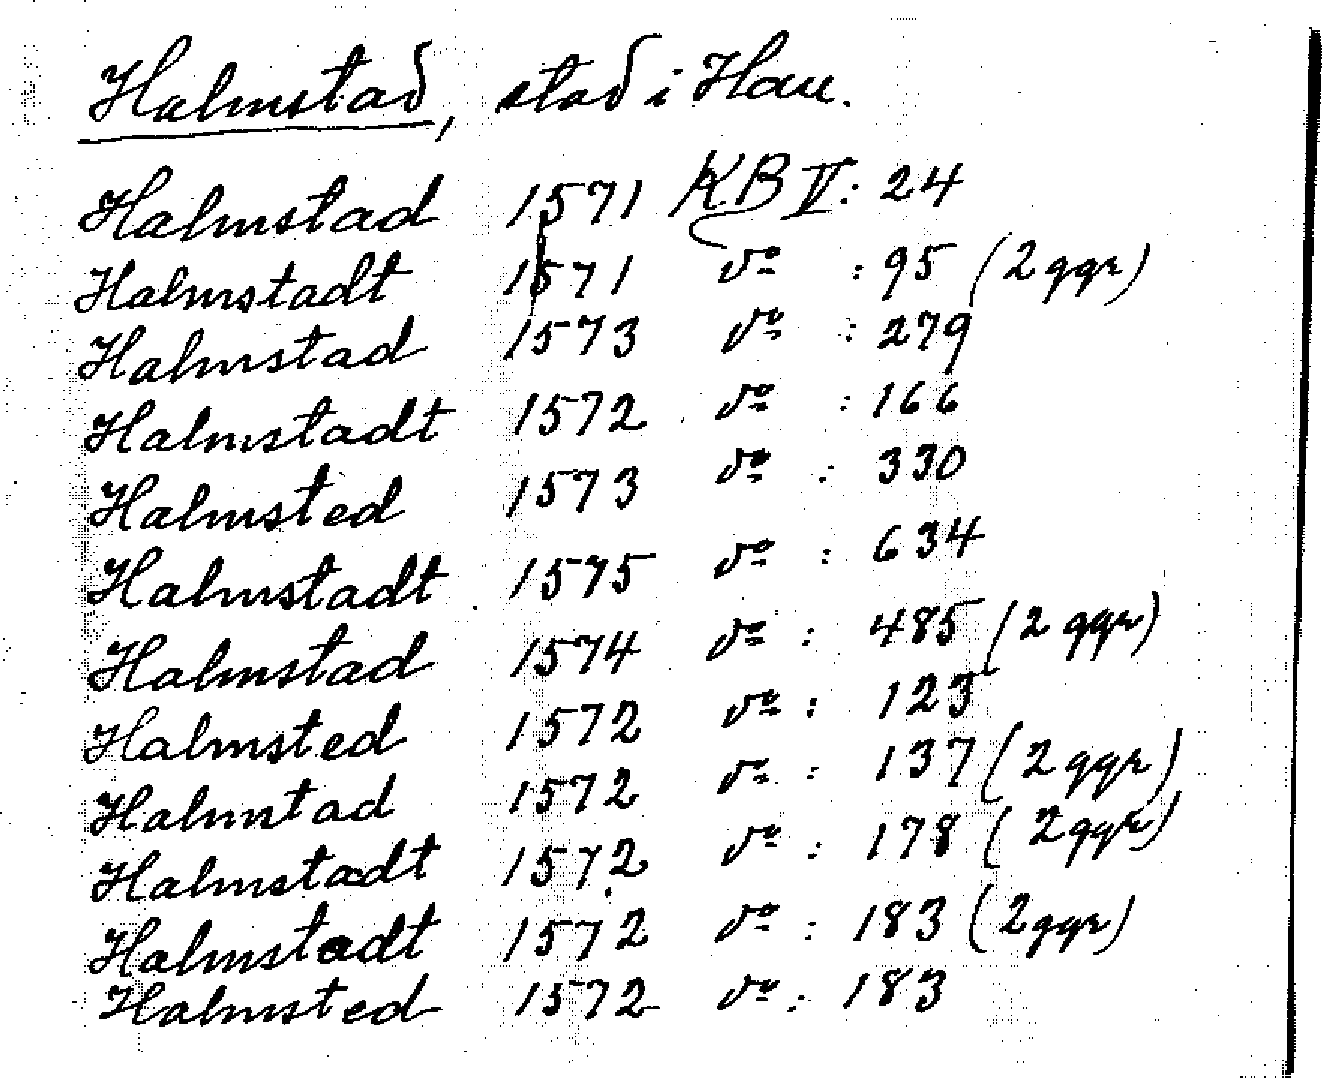 Halmstad, stad i Hall.
Halmstad 1571 KB V: 24
Halmstadt 1571 do : 95 (2 ggr)
Halmstad 1573 do : 279
Halmstadt 1572 do : 166
Halmsted 1573 do : 330
Halmstadt 1575 do : 634
Halmstad 1574 do : 485 (2 ggr)
Halmsted 1572 do : 123
Halmstad 1572 do : 137 (2 ggr)
Halmstadt 1572 do : 178 (2 ggr)
Halmstadt 1572 do : 183 (2 ggr)
Halmsted 1572 do : 183